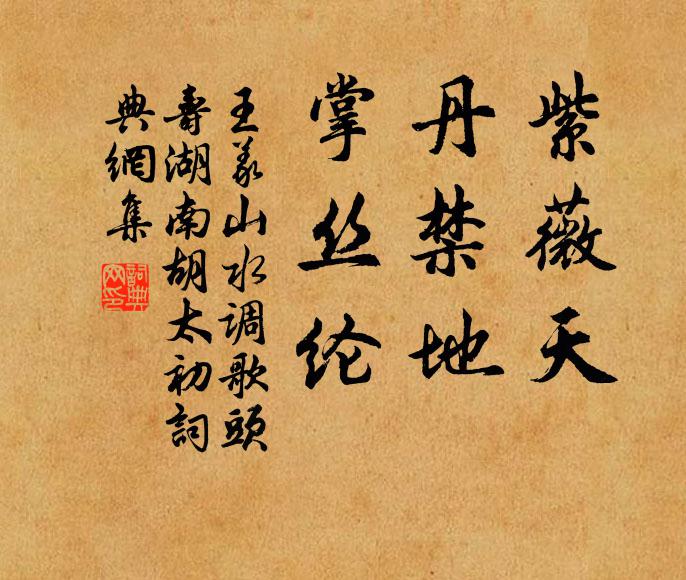 紫薇天
丹禁地
掌丝纶
王义山水调歌头
壽湖南胡太初詞
典網集
詞典
网印